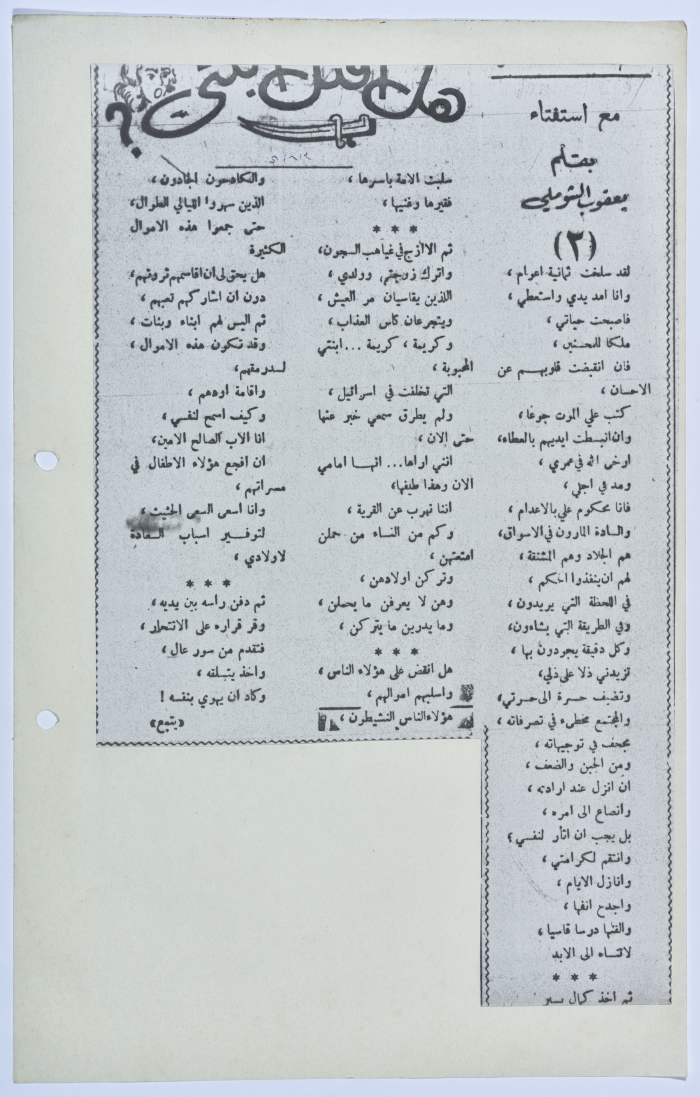 هل اقتل ابنتي ؟
مع استفتاء
بقلم
يعقوب الشوملي
(٣)
لقد سلخت ثمانية اعوام ،
وانا امد يدي واستعطي ،
فاصبحت حياتي ،
ملكا للمحسنين ،
فان انقبضت قلوبهم عن
الاحسان ،
كتب علي الموت جوعا ،
وان انبسطت ايديهم بالعطاء،
ارخى الله في عمري ،
ومد في اجلي ،
فانا محكوم علي بالاعدام ،
والسادة المارون في الاسواق،
هم الجلاد وهم المشنقة ،
لهم ان ينفذوا الحكم ،
في اللحظة التي يريدون ،
وفي الطريقة التي يشاءون،
وكل دقيقة يجودون بها ،
تزيدني ذلا على ذلي،
وتضيف حسرة الى حسرتي،
والمجتمع مخطىء في تصرفاته ،
مجحف في توجيهاته ،
ومن الجبن والضعف ،
ان انزل عند ارادته ،
وانصاع الى امره ،
بل يجب ان اثأر لنفسي ؟
وانتقم لكرامتي ،
وانازل الايام ،
واجدع انفها ،
والقنها درسا قاسيا ،
لاتنساه الى الابد
* * *
ثم اخذ كمال يسير
سلبت الامة باسرها ،
فقيرها وغنيها ،
* * *
ثم الاازج في غياهب السجون،
واترك زوجتي وولدي ،
اللذين يقاسيان مر العيش ،
ويتجرعان كاس العذاب ،
وكريمة ، كريمة ... ابنتي
المحبوبة ،
التي تخلفت في اسرائيل ،
ولم يطرق سمعي خبر عنها
حتى الان ،
انني اراها... انها امامي
الان وهذا طيفها،
اننا نهرب عن القرية ،
وكم من النساء من حملن
امتعتهن ،
وتركن اولادهن ،
وهن لا يعرفن ما يحملن ،
وما يدرين ما يتركن ،
* * *
هل انقض على هؤلاء الناس ،
واسلبهم اموالهم ،
هؤلاء الناس النشيطون ،
والكادحون الجادون ،
الذين سهروا الليالي الطوال،
حتى جمعوا هذه الاموال
الكثيرة
هل يحق لي ان اقاسمهم ثروتهم،
دون ان اشاركهم تعبهم ،
ثم اليس لهم ابناء وبنات ،
وقد تكون هذه الاموال ،
لسد رمقهم،
واقامة اودهم ،
وكيف اسمح لنفسي ،
انا الاب الصالح الامين،
ان افجع هؤلاء الاطفال في
مسراتهم ،
وانا اسعى السعي الحثيث ،
لتوفير اسباب السعادة
لاولادي ،
* * *
ثم دفن راسه بين يديه ،
وقر قراره على الانتحار ،
فتقدم من سور عال،
واخذ يتسلقه ،
وكاد ان يهوي بنفسه !
«يتبع»